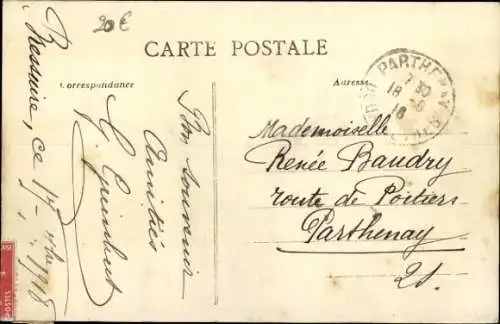 20€
CARTE POSTALE
Correspondance
Adresse
PARTHENAY
18
16
Bressuire, ce 17
1918
Bon souvenir
Amitiés
Mademoiselle
Renée Baudry
route de Poitiers
Parthenay
2S.